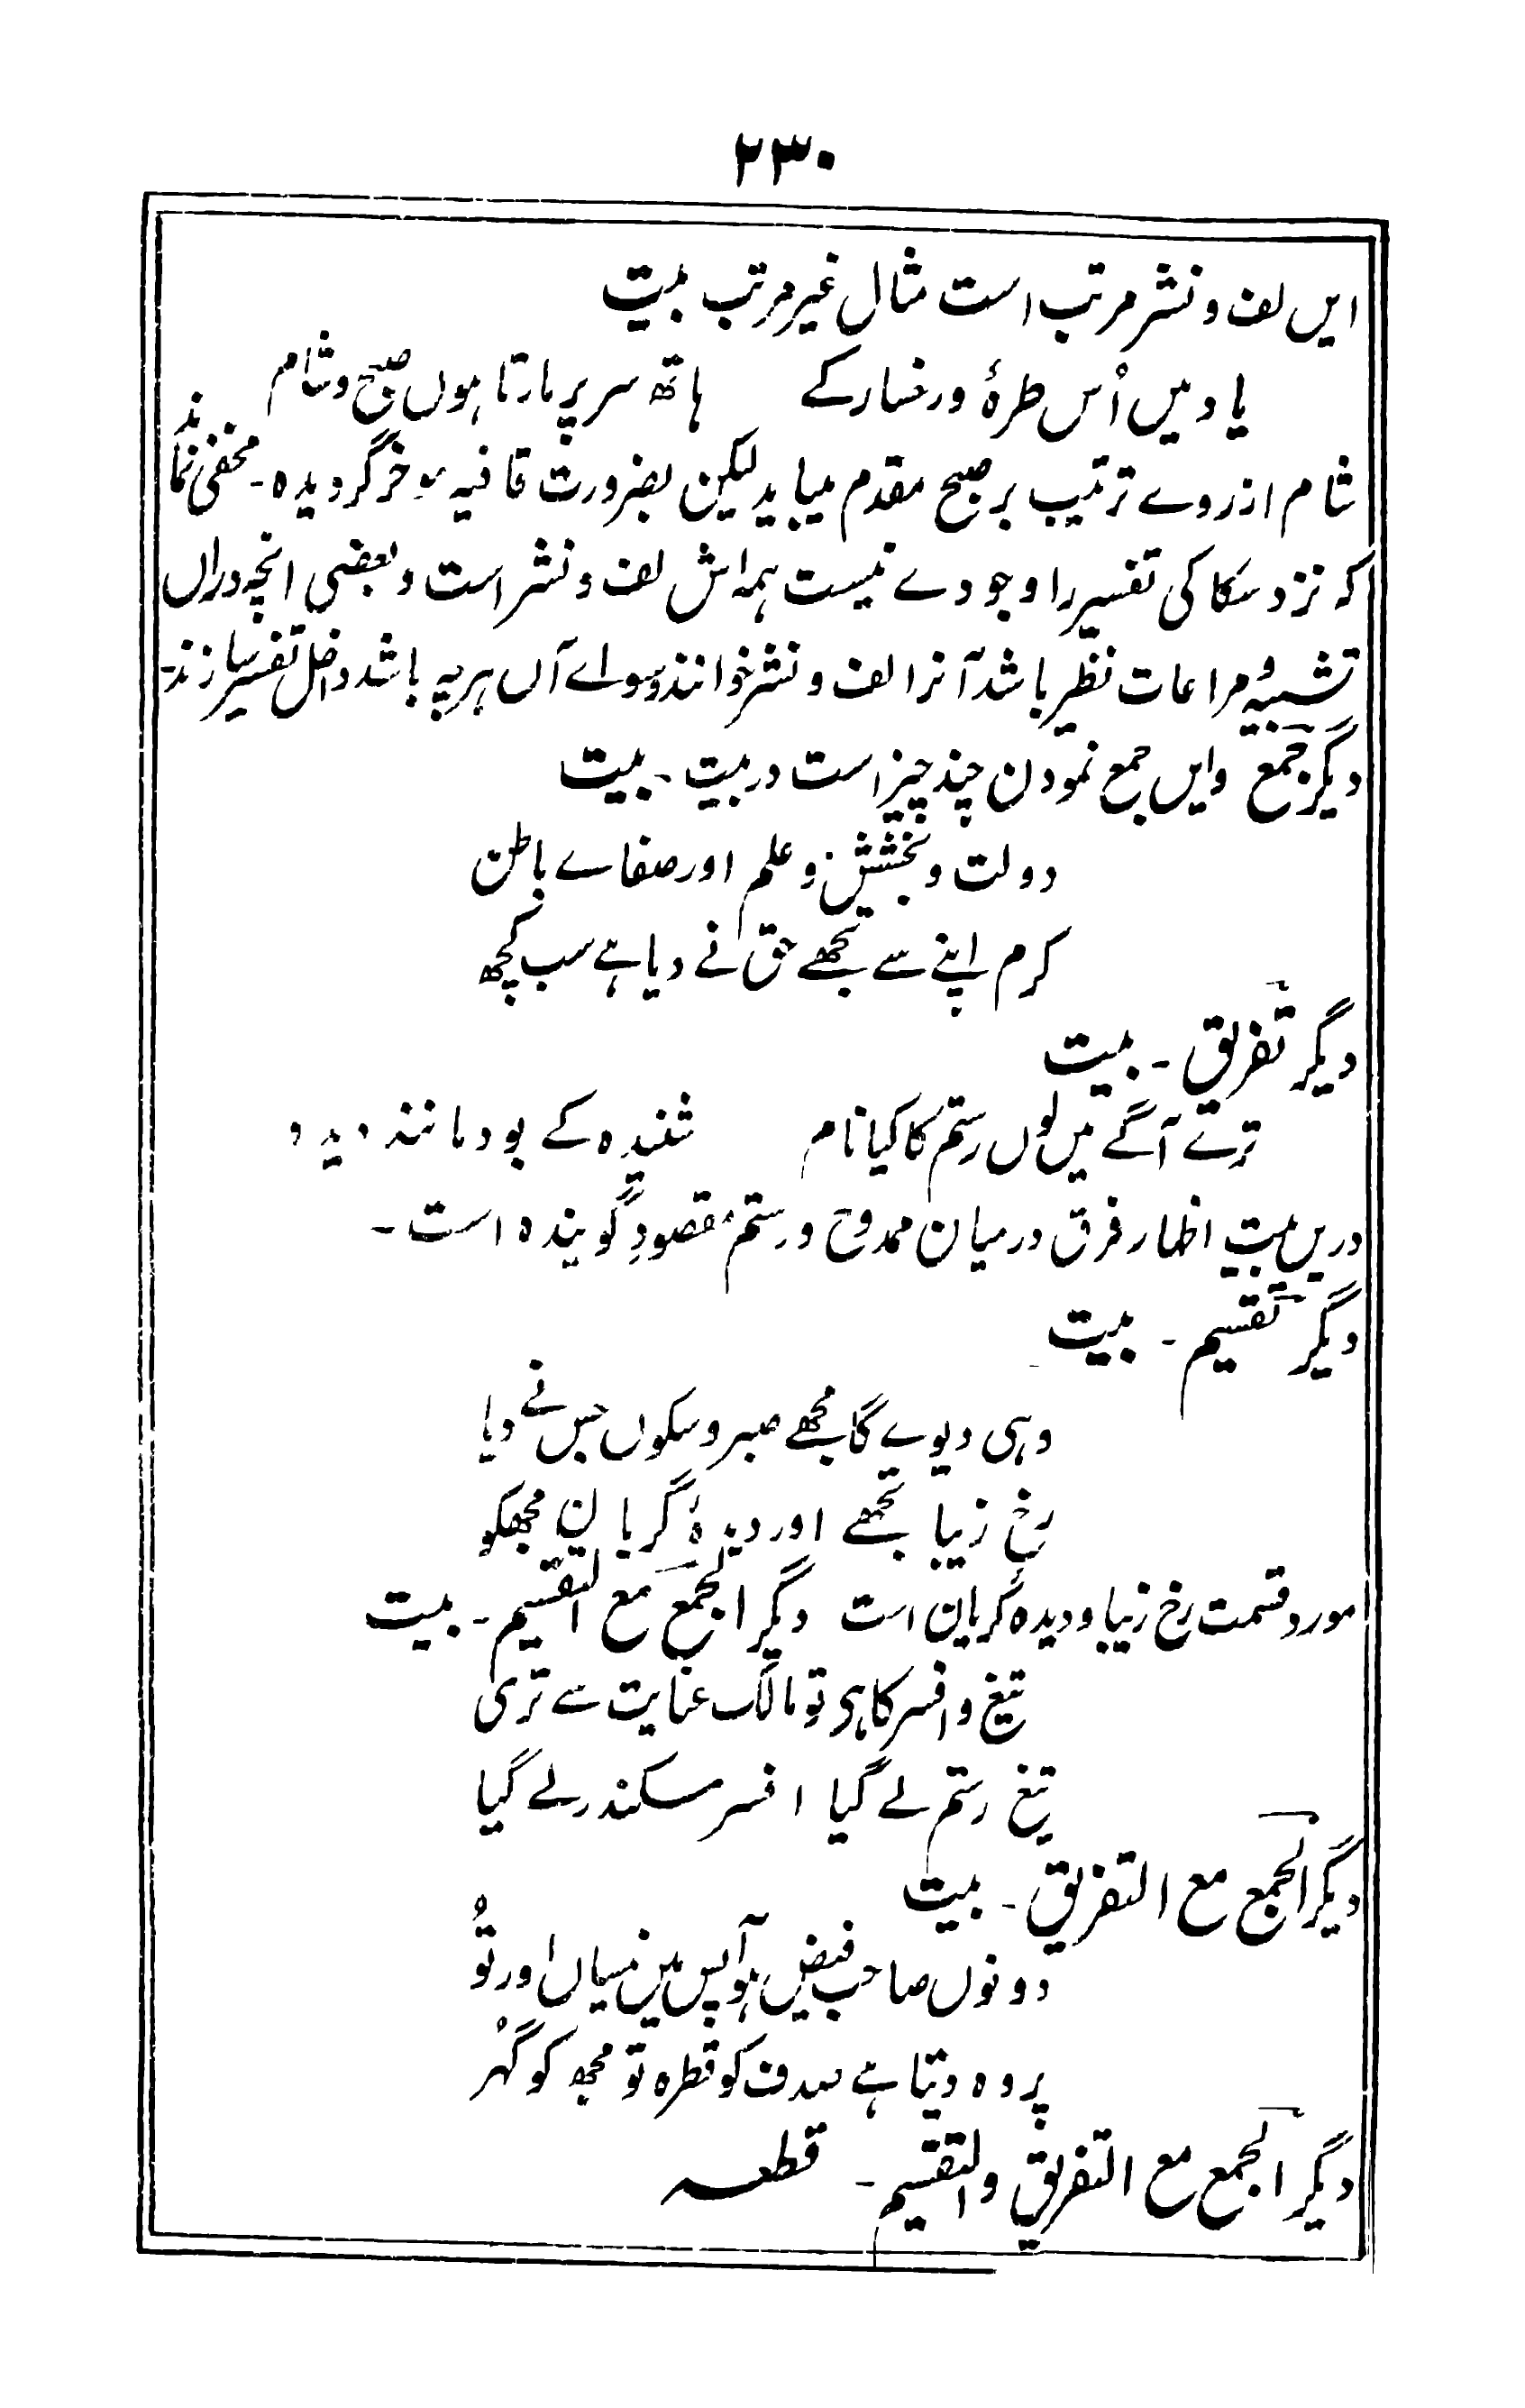 ۲۳۰
ایں لف و نشر مرتب است مثال غیر مرتب بیت
یاد میں اُس طرۂ و رخسار کے ہاتھ سر پر مارتا ہوں صبح و شام
شام از روے ترتیب بر صبح مقدم میباید لیکن بضرورت قافیہ موخر گردیدہ ۔ مخفی نماند
کہ نزد سکاکی تفسیر را وجودے نیست ہمہ اش لف و نشر است و بعضی انچہ دراں
تشبیہ و مراعات نظیر باشد آنرا لف و نشر خوانند و سواے آں ہر چہ باشد داخل تفسیر سازند۔
دیگر جمع وایں جمع نمودن چند چیز است در بیت ۔ بیت
دولت و بخشش و علم اور صفاے باطن
کرم اپنے سے تجھے حق نے دیا ہے سب کچھ
دیگر تفریق ۔ بیت
ترے آگے میں لوں رستم کا کیا نام شنیدہ کے بود مانند دیدہ
دریں بیت اظہار فرق درمیان ممدوح و رستم مقصودِ گویندہ است ۔
دیگر تقسیم ۔ بیت
وہی دیوے گا مجھے صبر و سکوں جس نے دیا
رخ زیبا تجھے اور دیدۂ گریاں مجھکو
مورد قسمت رخ زیبا و دیدۂ گریان است دیگر الجمع مع التقسیم ۔ بیت
تیغ و افسر کا ہی تو مالک عنایت سے تری
تیغ رستم لے گیا افسر سکندر لے گیا
دیگر الجمع مع التفریق ۔ بیت
دونوں صاحب فیض ہو آپس میں نیساں اور تُو
پر وہ دیتا ہے صدف کو قطرہ تو مجھ کو گہُر
دیگر الجمع مع التفریق والتقسیم ۔ قطعہ